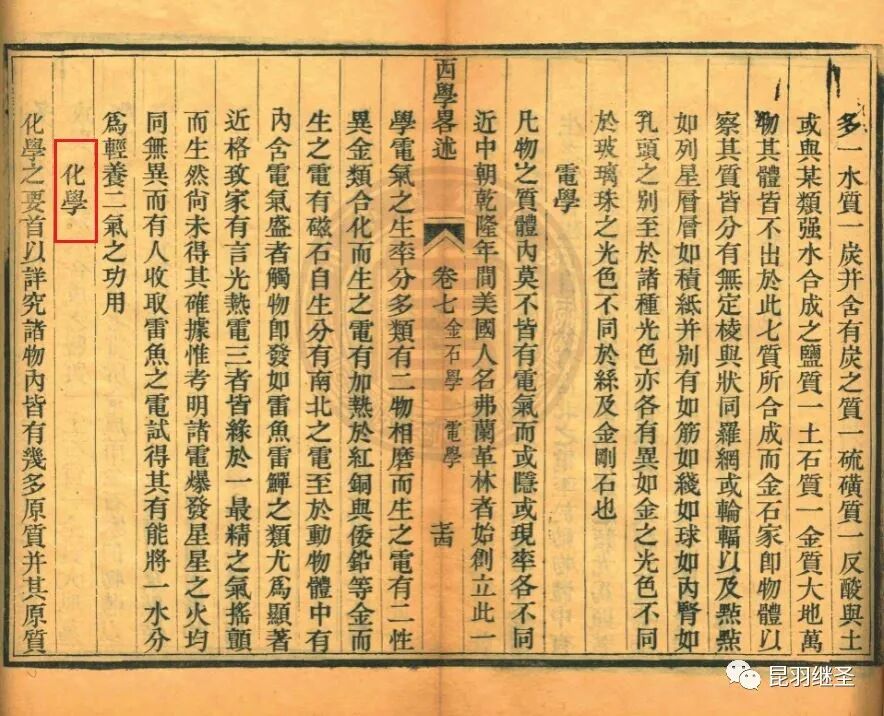 多一水質一炭并含有炭之質一硫磺質一反酸與土
或與某類强水合成之鹽質一土石質一金質大地萬
物其體皆不出於此七質所合成而金石家卽物體以
察其質皆分有無定棱與狀同羅網或輪輻以及㸃㸃
如列星層層如積紙并別有如筋如綫如球如內腎如
孔頭之別至於諸種光色亦各有異如金之光色不同
於玻璃珠之光色不同於絲及金剛石也
電學
凡物之質體內莫不皆有電氣而或隱或現率各不同
近中朝乾隆年間美國人名弗蘭革林者始創立此一
西學畧述
卷七 金石學 電學
十四
學電氣之生率分多類有二物相磨而生之電有二性
異金類合化而生之電有加熱於紅銅與倭鉛等金而
生之電有磁石自生分有南北之電至於動物體中有
內含電氣盛者觸物卽發如雷魚雷鱓之類尤爲顯著
近格致家有言光熱電三者皆緣於一最精之氣搖顫
而生然尙未得其確據惟考明諸電爆發星星之火均
同無異而有人收取雷魚之電試得其有能將一水分
爲輕養二氣之功用
化學
化學之要首以詳究諸物內皆有幾多原質并其原質
昆羽继圣